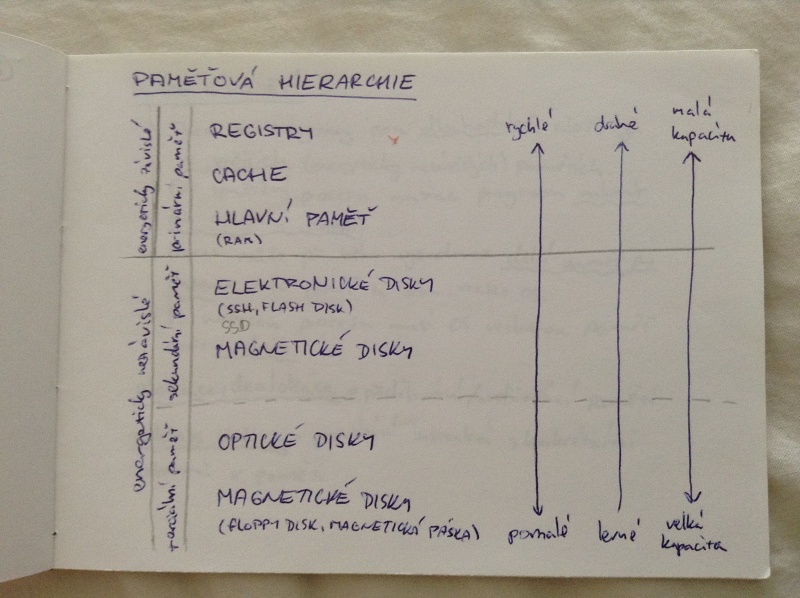 PAMĚŤOVÁ HIERARCHIE
energeticky závislé
primární paměť
REGISTRY
CACHE
HLAVNÍ PAMĚŤ
(RAM)
energeticky nezávislé
sekundární paměť
ELEKTRONICKÉ DISKY
(SSH, FLASH DISK)
SSD
MAGNETICKÉ DISKY
terciální paměť
OPTICKÉ DISKY
MAGNETICKÉ DISKY
(FLOPPY DISK, MAGNETICKÁ PÁSKA)
rychlé
drahé
malá
kapacita
pomalé
levné
velká
kapacita